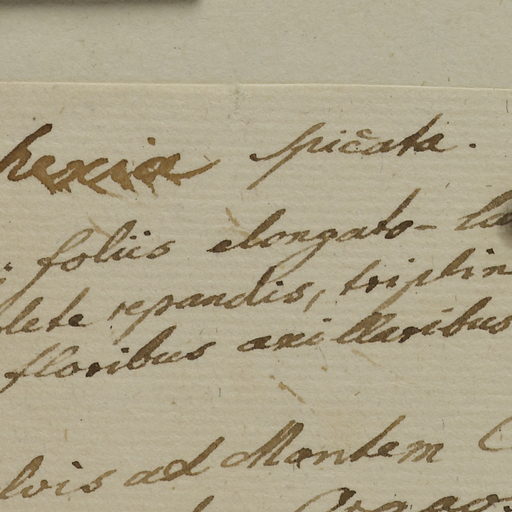 hexia spicata.
foliis elongato-la
lete repandis, triplin
floribus axillaribus
lvis ad Montem C